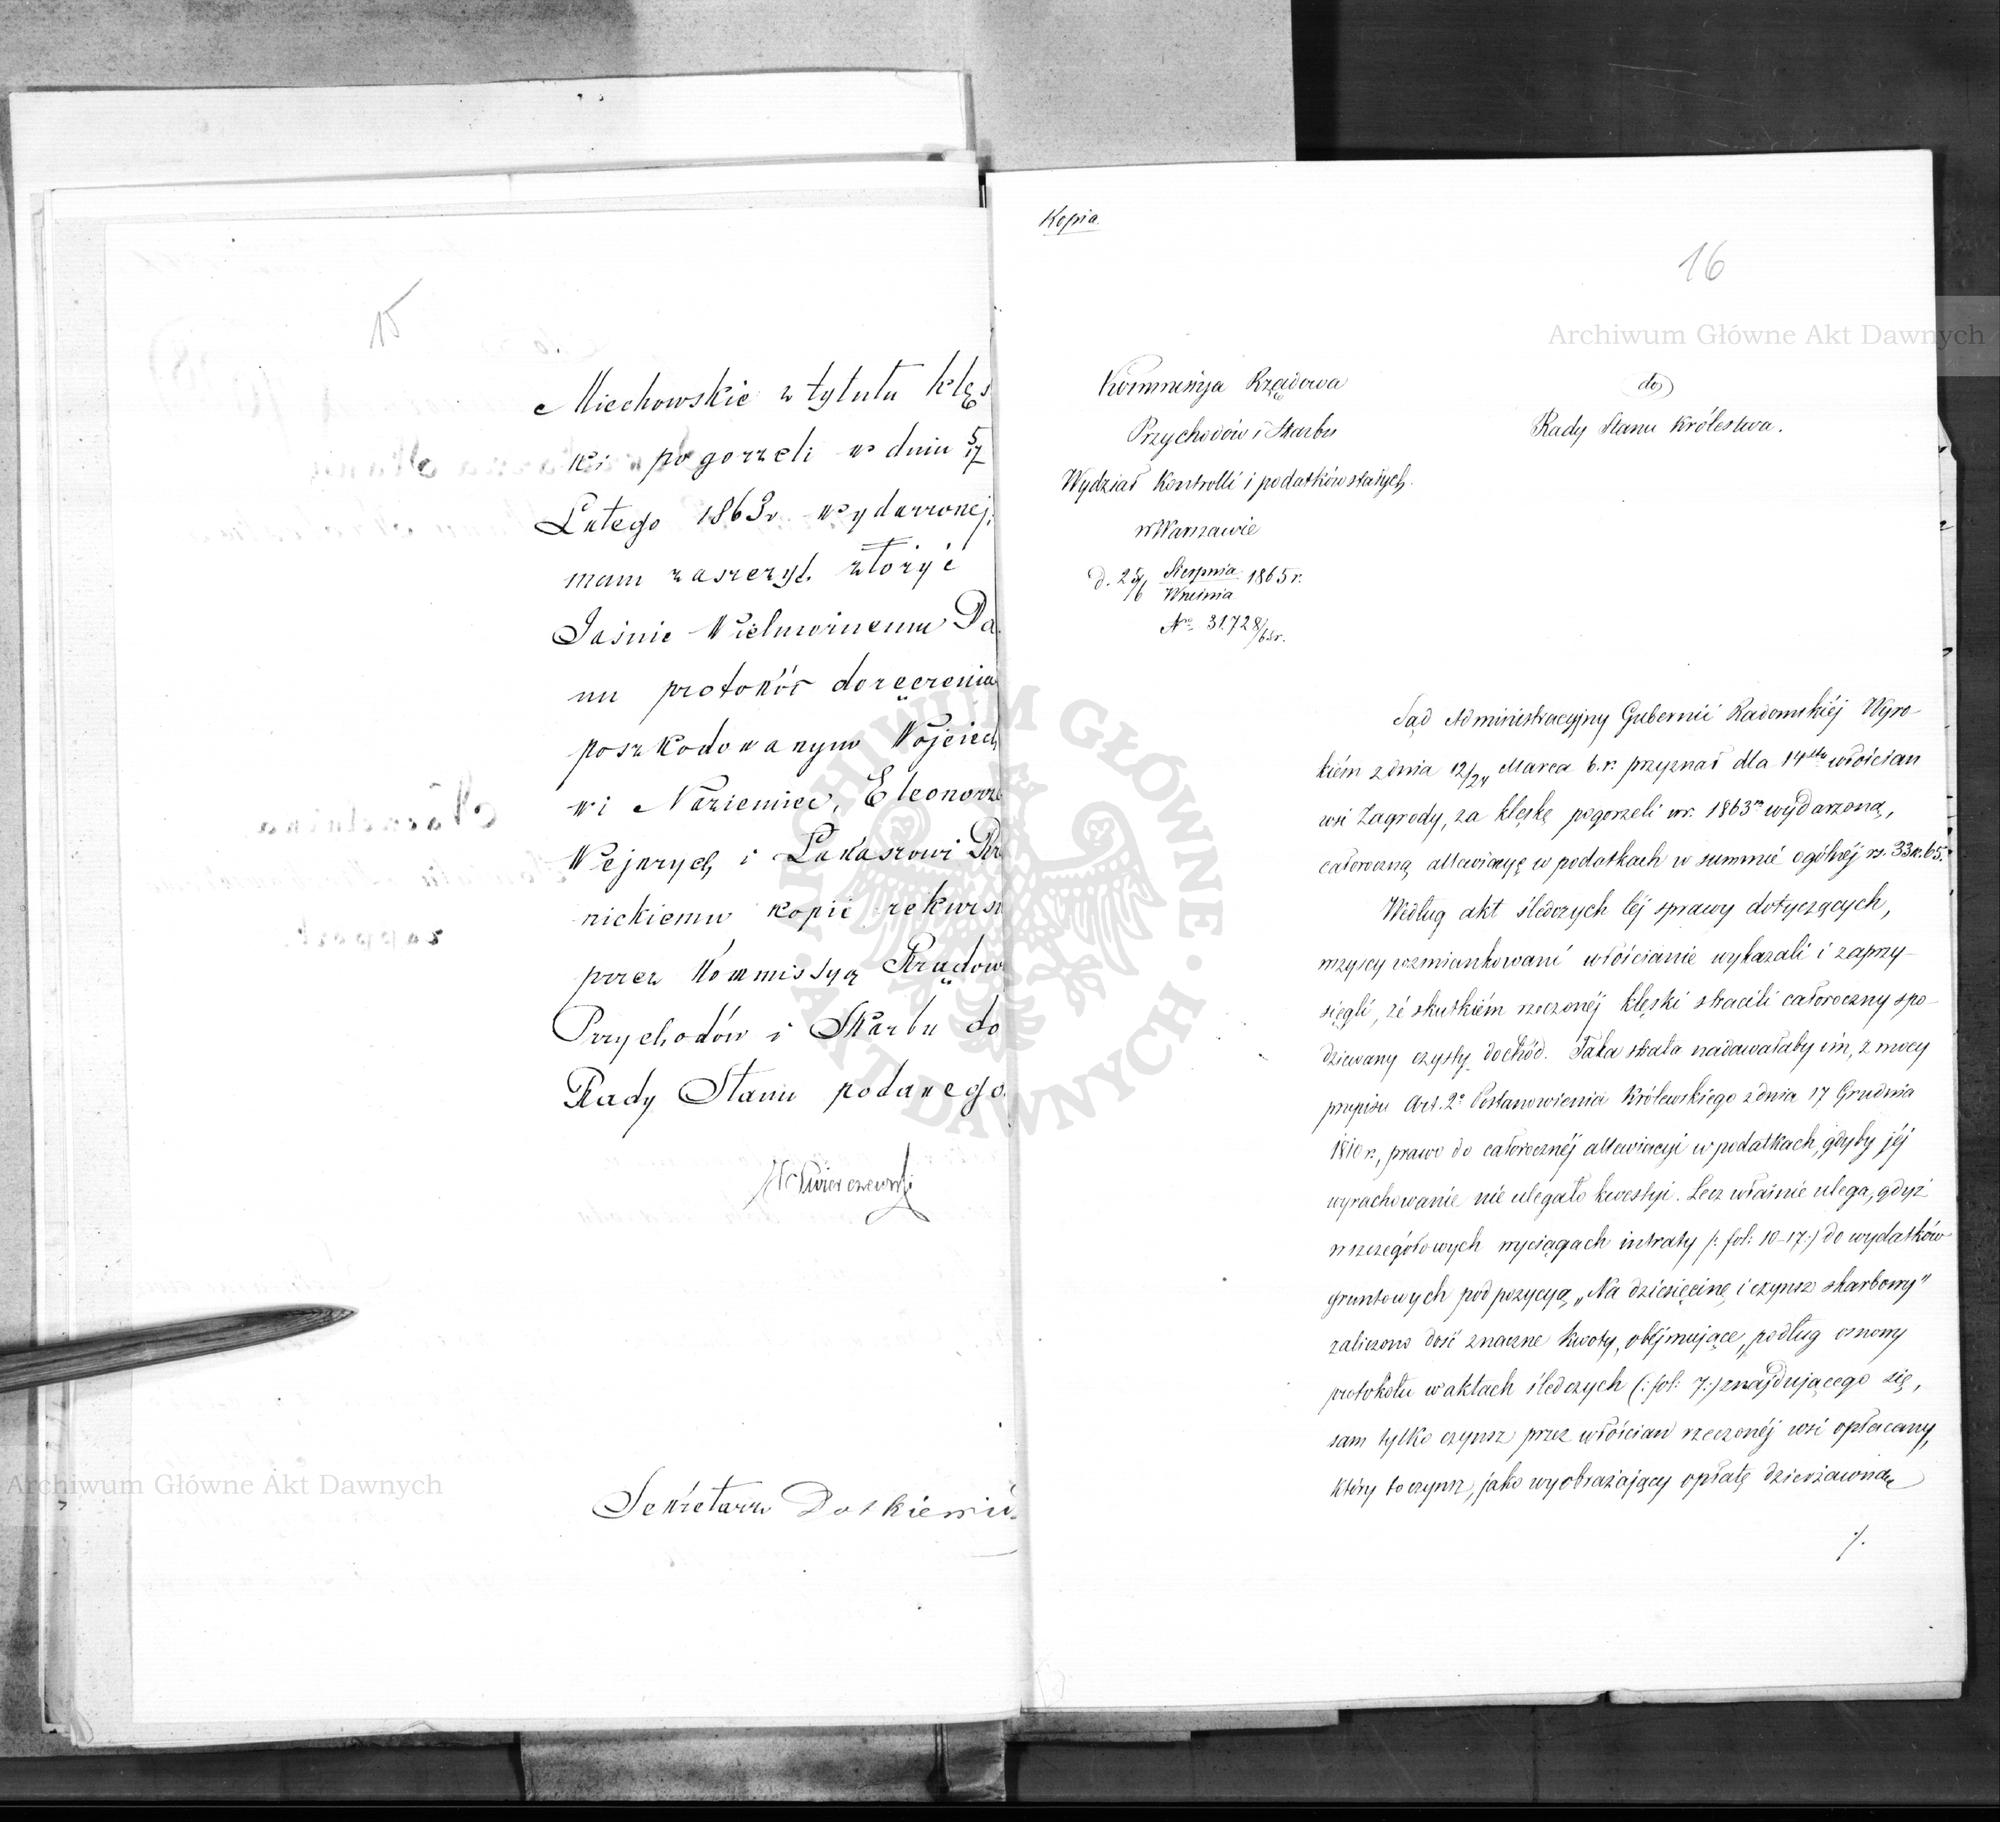 15
Miechowskie z tytułu klęs
ki pogorzeli w dniu 5/17
Lutego 1863 r wydarzonej,
mam zaszczyt złożyć
Jaśnie Wielmożnemu Pa
nu protokół doręczenia
poszkodowanym Wojciech
wi Niziemiec, Eleonorze
Wejnrych i Łukaszowi
nickiemu kopii rekursu
przez Kommissyą Rządow
Przychodów i Skarbu do
Rady Stanu podanego.
Świerczewski
Sekretarz
Kopia
16
Kommissyja Rządowa
Przychodów i Skarbu
Wydział Kontrolli i podatków stałych.
w Warszawie
d. 25/6 Sierpnia/Września 1865 r.
No 31.728/65r.
do
Rady Stanu Królestwa.
Sąd Administracyjny Gubernii Radomskiéj Wyro-
kiém z dnia 12/24 Marca b. r. przyznał dla 14stu włościan
wsi Zagrody, za klęskę pogorzeli w r. 1863m wydarzoną,
całoroczną allewiacyę w podatkach w summie ogólnéj rs. 33 k. 65.
Według akt śledczych téj sprawy dotyczących,
wszyscy wzmiankowani włościanie wykazali i zaprzy-
sięgli, że skutkiém rzeczonéj klęski stracili całoroczny spo-
dziewany czysty dochód. Taka strata nadawałaby im, z mocy
przepisu Art. 2o Postanowienia Królewskiego z dnia 17 Grudnia
1810 r., prawo do całorocznéj allewiacyi w podatkach, gdyby jéj
wyrachowanie nie ulegało kwestyi. Lecz właśnie ulega, gdyż
w szczegółowych wyciągach intraty /: fol: 10-17:/ do wydatków
gruntowych pod pozycyą „Na dziesięcinę i czynsz skarbowy"
zaliczono dość znaczne kwoty, obéjmujące, podług osnowy
protokółu w aktach śledczych (: fol: 7:) znajdującego się,
sam tylko czynsz przez włościan rzeczonéj wsi opłacany,
który to czynsz, jako wyobrażający opłatę dzierżawną
./.
Archiwum Główne Akt Dawnych
Archiwum Główne Akt Dawnych
ARCHIWUM GŁÓWNE
AKT DAWNYCH